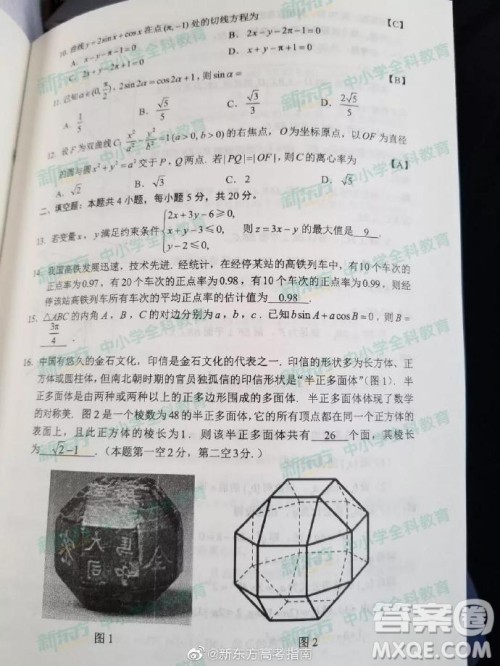 10. 曲线y=2sinx+cosx在点(π,-1)处的切线方程为 【C】
A. x-y-π-1=0 B. 2x-y-2π-1=0
C. 2x+y-2π+1=0 D. x+y-π+1=0
11. 已知α∈(0,π/2), 2sin2α=cos2α+1, 则sinα= 【B】
A. 1/5 B. √5/5 C. √3/3 D. 2√5/5
12. 设F为双曲线C: x²/a²-y²/b²=1(a>0,b>0)的右焦点, O为坐标原点, 以OF为直径
的圆与圆x²+y²=a²交于P, Q两点. 若|PQ|=|OF|, 则C的离心率为 【A】
A. √2 B. √3 C. 2 D. √5
二、填空题: 本题共4小题, 每小题5分, 共20分.
13. 若变量x, y满足约束条件{2x+3y-6≥0, x+y-3≤0, y-2≤0, 则z=3x-y的最大值是 9 .
14. 我国高铁发展迅速, 技术先进. 经统计, 在经停某站的高铁列车中, 有10个车次的
正点率为0.97, 有20个车次的正点率为0.98, 有10个车次的正点率为0.99, 则经
停该站高铁列车所有车次的平均正点率的估计值为 0.98 .
15. △ABC的内角A, B, C的对边分别为a, b, c. 已知bsinA+acosB=0, 则B=
3π/4 .
16. 中国有悠久的金石文化, 印信是金石文化的代表之一. 印信的形状多为长方体、正
方体或圆柱体, 但南北朝时期的官员独孤信的印信形状是“半正多面体”(图1). 半
正多面体是由两种或两种以上的正多边形围成的多面体. 半正多面体体现了数学
的对称美. 图2是一个棱数为48的半正多面体, 它的所有顶点都在同一个正方体的
表面上, 且此正方体的棱长为1. 则该半正多面体共有 26 个面, 其棱长
为 √2-1 . (本题第一空2分, 第二空3分.)
图1 图2
@新东方高考指南
答案圈
MXQE.COM